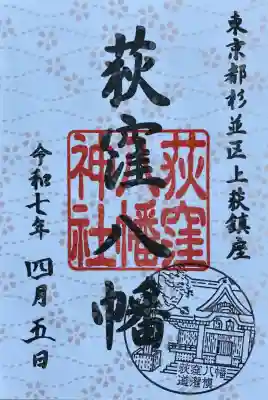 東京都杉並区上荻鎮座
荻窪八幡
荻窪八幡神社
令和七年 四月五日
荻窪八幡